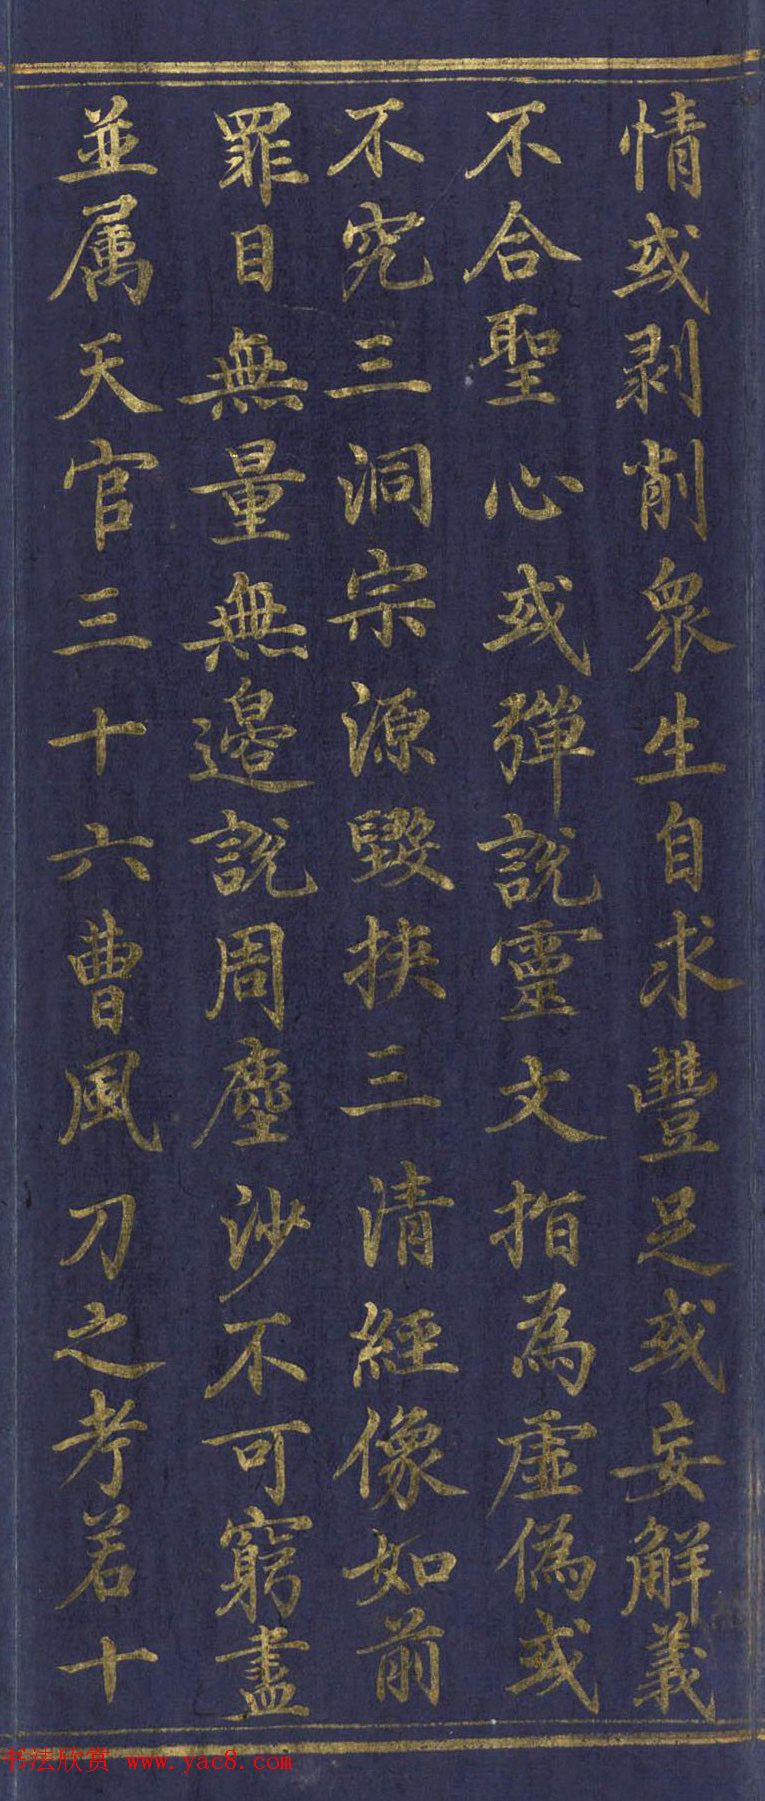 情或剥削衆生自求豐足或妄解義
不合聖心或彈說靈文指為虛偽或
不究三洞宗源毀挾三清經像如前
罪目無量無邊說周塵沙不可窮盡
並属天官三十六曹風刀之考若十
书法欣赏 www.yac8.com